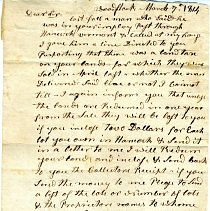 Woodstock March 7th 1814
Dear Sir
Last fall a man who said he
was in your employ passed through
Hancock Vermont & called at my house
I gave him a line Directed to you
Respecting that there was a land tax
on your lands for which they was
Sold in April last & whether the man
Delivered the said line or not I cannot
tell I again inform you that unless
the lands are Redeemed in one year
from the Sale they will be lost to you
if you inclose two Dollars for Each
lot you own in Hancock & Send it
in a letter to me I will Redeem
your land and inclose & Send back
to you the Collectors Receipt if you
Send the money to me Please to Send
a list of the lots or Number of lots
& the Proprietors names to whom